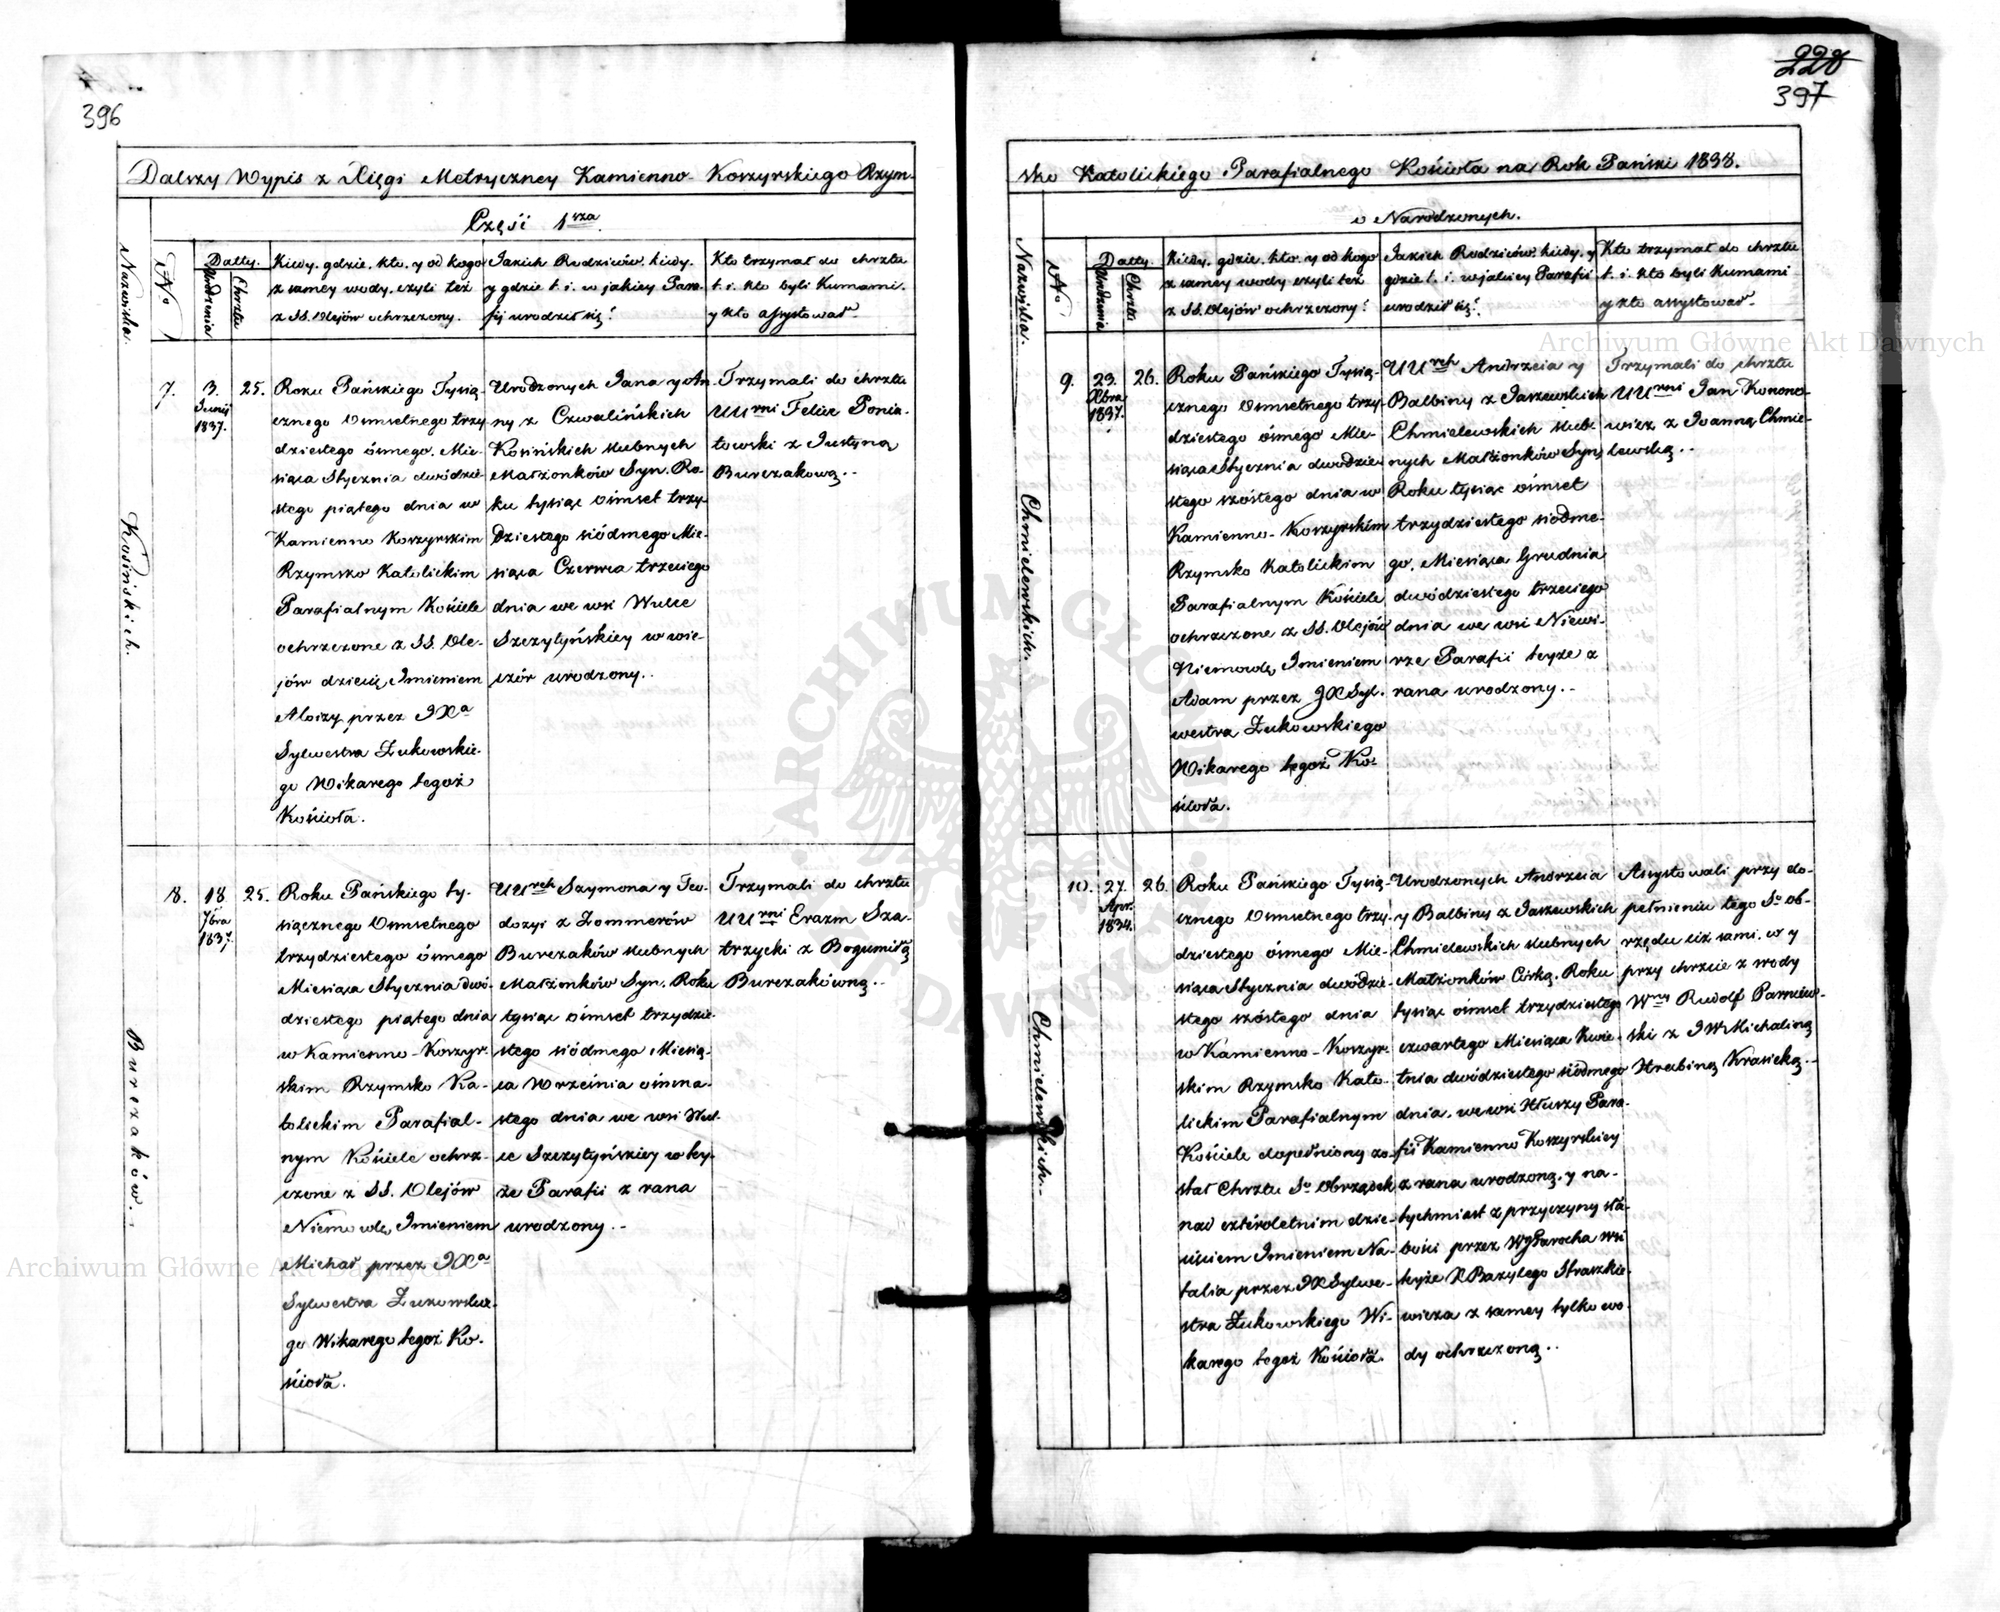 396
Dalszy Wypis z Xięgi Metryczney Kamienno-Koszyrskiego Rzym-
Część 1sza
Nazwiska.
No
Datty.
Urodzenia
Chrztu
Kiedy, gdzie, kto, y od kogo
z samey wody, czyli też
z SS. Olejów ochrzczony.
Jakich Rodziców, kiedy,
y gdzie t. i. w jakiey Para-
fij urodził się?
Kto trzymał do chrztu
t. i. kto byli Kumami.
y kto assystował.
Kosińskich.
7.
3.
Junij
1837.
25.
Roku Pańskiego Tysią-
cznego Osmsetnego trzy
dziestego ósmego, Mie-
siąca Stycznia dwódzie-
stego piątego dnia w
Kamienno Koszyrskim
Rzymsko Katolickim
Parafialnym Kościele
ochrzczone z SS. Ole-
jów dziecię, Imieniem
Aloizy, przez JXa
Sylwestra Żukowskie-
go Wikarego tegoż
Kościoła.
Urodzonych Jana y An-
ny z Czwalińskich
Kosińskich slubnych
Małżonków Syn, Ro-
ku tysiąc ósmset trzy-
dziestego siódmego Mie-
siąca Czerwca trzeciego
dnia we wsi Wulce
Szczytyńskiey w wie-
czór urodzony..
Trzymali do chrztu
UUrni Felix Ponia-
towski z Justyną
Burczakową..
Burczaków.
8.
18
7bra
1837.
25.
Roku Pańskiego ty-
siącznego Osmsetnego
trzydziestego ósmego
Miesiąca Stycznia dwó-
dziestego piątego dnia
w Kamienno-Koszyr-
skim Rzymsko Ka-
tolickim Parafial-
nym Kościele ochrz-
czone z SS. Olejów
Niemowle, Imieniem
Michał przez JXa
Sylwestra Żukowskie-
go Wikarego tegoż Ko-
ścioła.
UUrch Szymona y Teo-
dozyi z Zommerów
Burczaków slubnych
Małżonków Syn, Roku
tysiąc ósmset trzydzie-
stego siódmego Miesią-
ca Września ośmna-
stego dnia we wsi Wul-
ce Szczytyńskiey w tey-
że Parafii z rana
urodzony..
Trzymali do chrztu
UUrni Erazm Sza-
trzycki z Bogumiłą
Burczakówną..
228
397
sko Katolickiego Parafialnego Kościoła na Rok Pański 1838.
o Narodzonych.
Nazwiska.
No
Datty.
Urodzenia
Chrztu
Kiedy, gdzie, kto, y od kogo
z samey wody czyli też
z SS. Olejów ochrzczony?
Jakich Rodziców, kiedy, y
gdzie t. i. w jakiey Parafii
urodził się?
Kto trzymał do chrztu
t. i. kto byli Kumami
y kto assystował.
Chmielewskich.
9.
23.
Xbra
1837.
26.
Roku Pańskiego Tysią-
cznego Osmsetnego trzy-
dziestego ósmego Mie-
siąca Stycznia dwódzie-
stego szóstego dnia w
Kamienno-Koszyrskim
Rzymsko Katolickim
Parafialnym Kościele
ochrzczone z SS. Olejów
Niemowlę, Imieniem
Adam przez JX Syl-
westra Żukowskiego
Wikarego tegoż Ko-
ścioła.
UUrch Andrzeia y
Balbiny z Jaszewskich
Chmielewskich slub-
nych Małżonków Syn,
Roku tysiąc ośmset
trzydziestego siódme-
go, Miesiąca Grudnia
dwódziestego trzeciego
dnia we wsi Niewi-
rze Parafii teyże z
rana urodzony..
Trzymali do chrztu
UUrni Jan Konono-
wicz z Joanną Chmie-
lewską..
Chmielewskich..
10.
27.
Apr.
1834.
26.
Roku Pańskiego Tysią-
cznego Osmsetnego trzy-
dziestego ósmego Mie-
siąca Stycznia dwódzie-
stego szóstego dnia
w Kamienno-Koszyr-
skim Rzymsko Kato-
lickim Parafialnym
Kościele dopełniony zo-
stał Chrztu So Obrządek
nad czteroletnim dzie-
cięciem Imieniem Na-
talia przez JX Sylwe-
stra Żukowskiego Wi-
karego tegoż Kościoła.
Urodzonych Andrzeia
y Balbiny z Jaszewskich
Chmielewskich slubnych
Małżonków Córką, Roku
tysiąc ośmset trzydziestego
czwartego Miesiąca Kwie-
tnia dwódziestego siódmego
dnia, we wsi Hłuszy Para-
fii Kamienno Koszyrskiey
z rana urodzoną, y na-
tychmiast z przyczyny sła-
bości przez WJParocha wsi
teyże X Bazylego Straszkie-
wicza z samey tylko wo-
dy ochrzczoną..
Assystowali przy do-
pełnieniu tego So ob-
rzędu ciż sami, co y
przy chrzcie z wody
Wny Rudolf Parniew-
ski z JW Michaliną
Hrabiną Krasicką..
Archiwum Główne Akt Dawnych
Archiwum Główne Akt Dawnych
ARCHIWUM GŁÓWNE AKT DAWNYCH